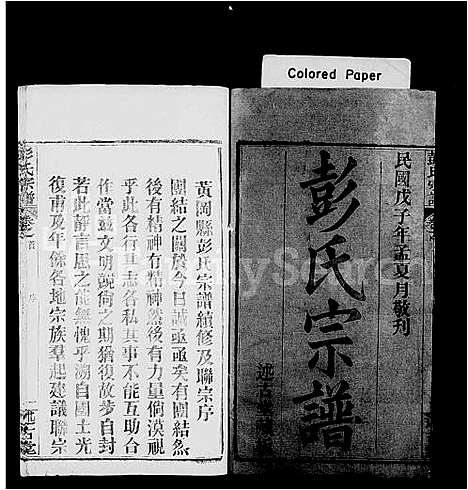 Colored Paper
民國戊子年孟夏月敬刊
彭氏宗譜
述古堂
彭氏宗譜
黃岡縣彭氏宗譜續修及聯宗序
團結之關於今日誠亟亟矣有團結然
後有精神有精神然後有力量倘漠視
乎此各行其志各私其事不能互助合
作當茲文明競尚之期猶復故步自封
若此靜言思之能無愧乎溯自國土光
復甫及年餘各地宗族羣起建議聯宗
彭氏宗譜
卷首
序
述古堂